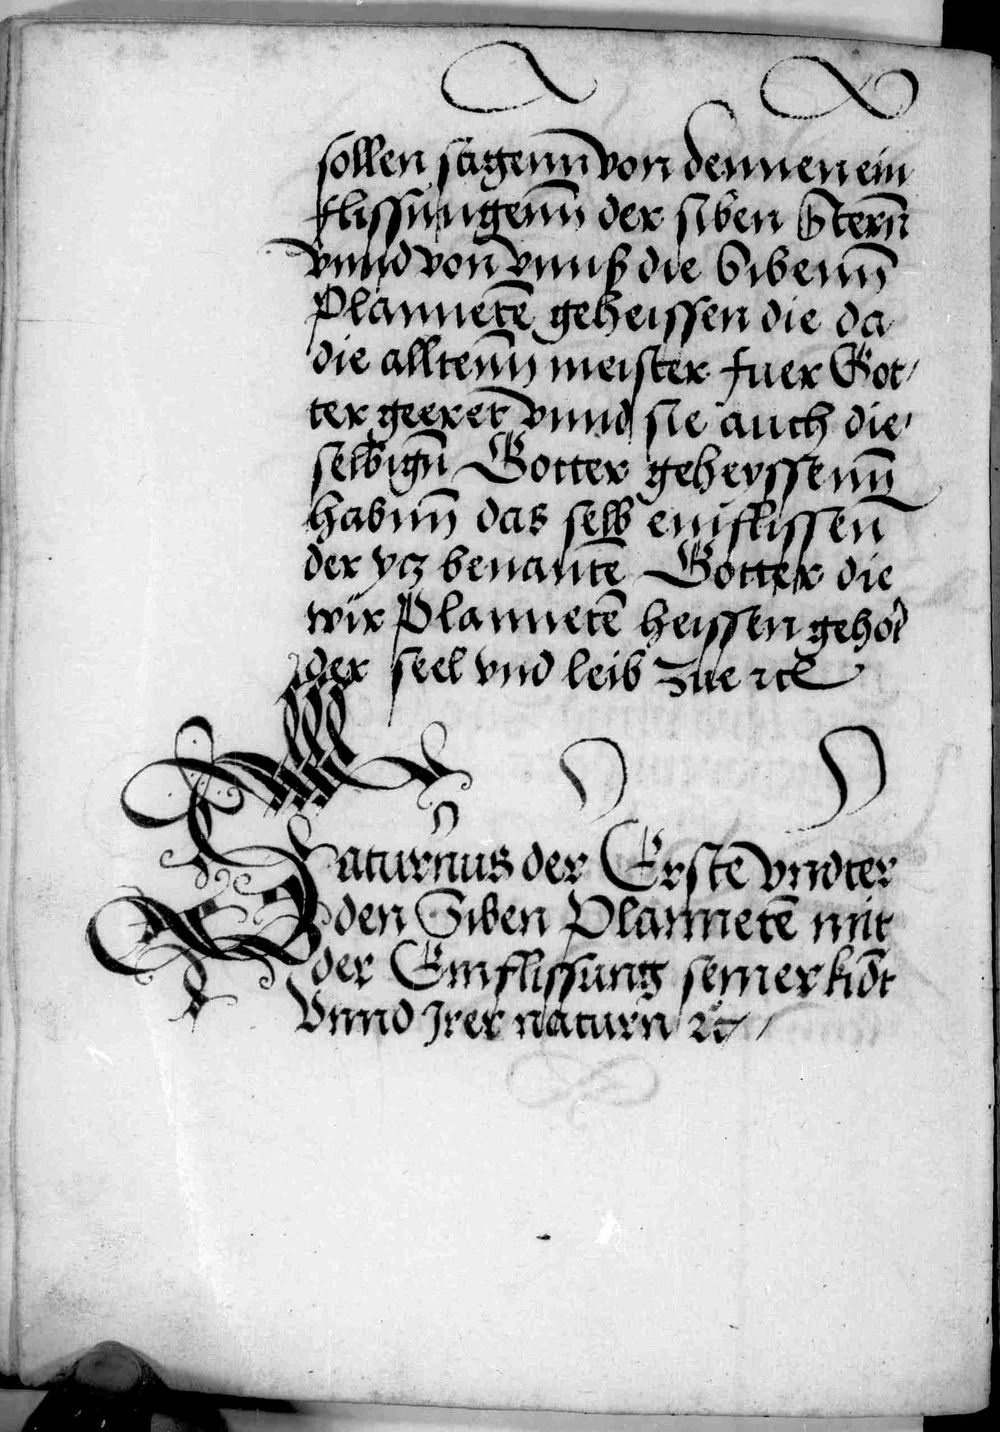 sollen sagenn von dennen ein
flissungenn der siben Sternn
vnnd von vnnß die Sibenn
Planneten̄ geheissen die da
die alltenn meister fuer Got-
ter geeret vnnd sie auch die
selbign̄ Gotter geheyssenn
habnn̄ das selb einflissen̄
der ytz benantē Gotter die
wir Plannetē heissen gehört
der seel vnd leib zue etc
Saturnus der Erste vndter
den Siben Plannetē mit
der Einflissung seiner kindt
Vnnd Jrer naturn etc